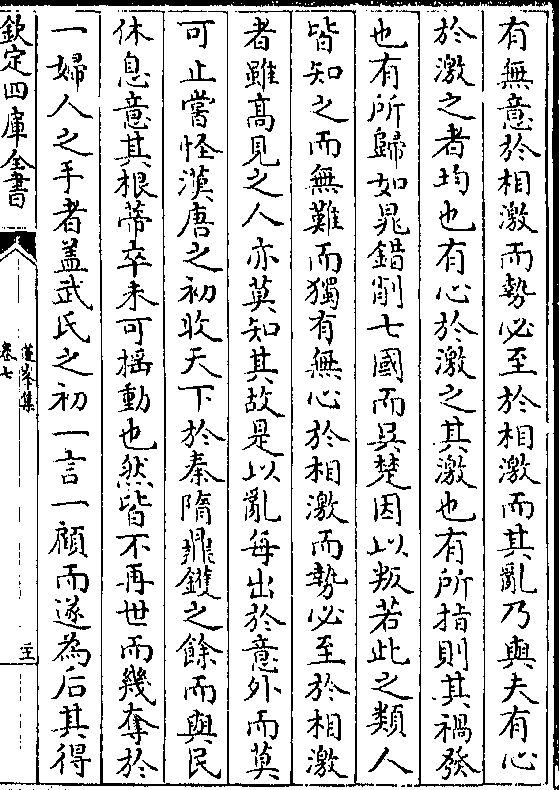 有無意於相激而勢必至於相激而其亂乃與夫有心
於激之者均也有心於激之其激也有所指則其禍發
也有所歸如晁錯削七國而吳楚因以叛若此之類人
皆知之而無難而獨有無心於相激而勢必至於相激
者雖髙見之人亦莫知其故是以亂每出於意外而莫
可止嘗怪漢唐之初收天下於秦隋鼎鑊之餘而與民
休息意其根蒂卒未可揺動也然皆不再世而幾奪於
一婦人之手者盖武氏之初一言一顧而遂為后其得
欽定四庫全書
卷七